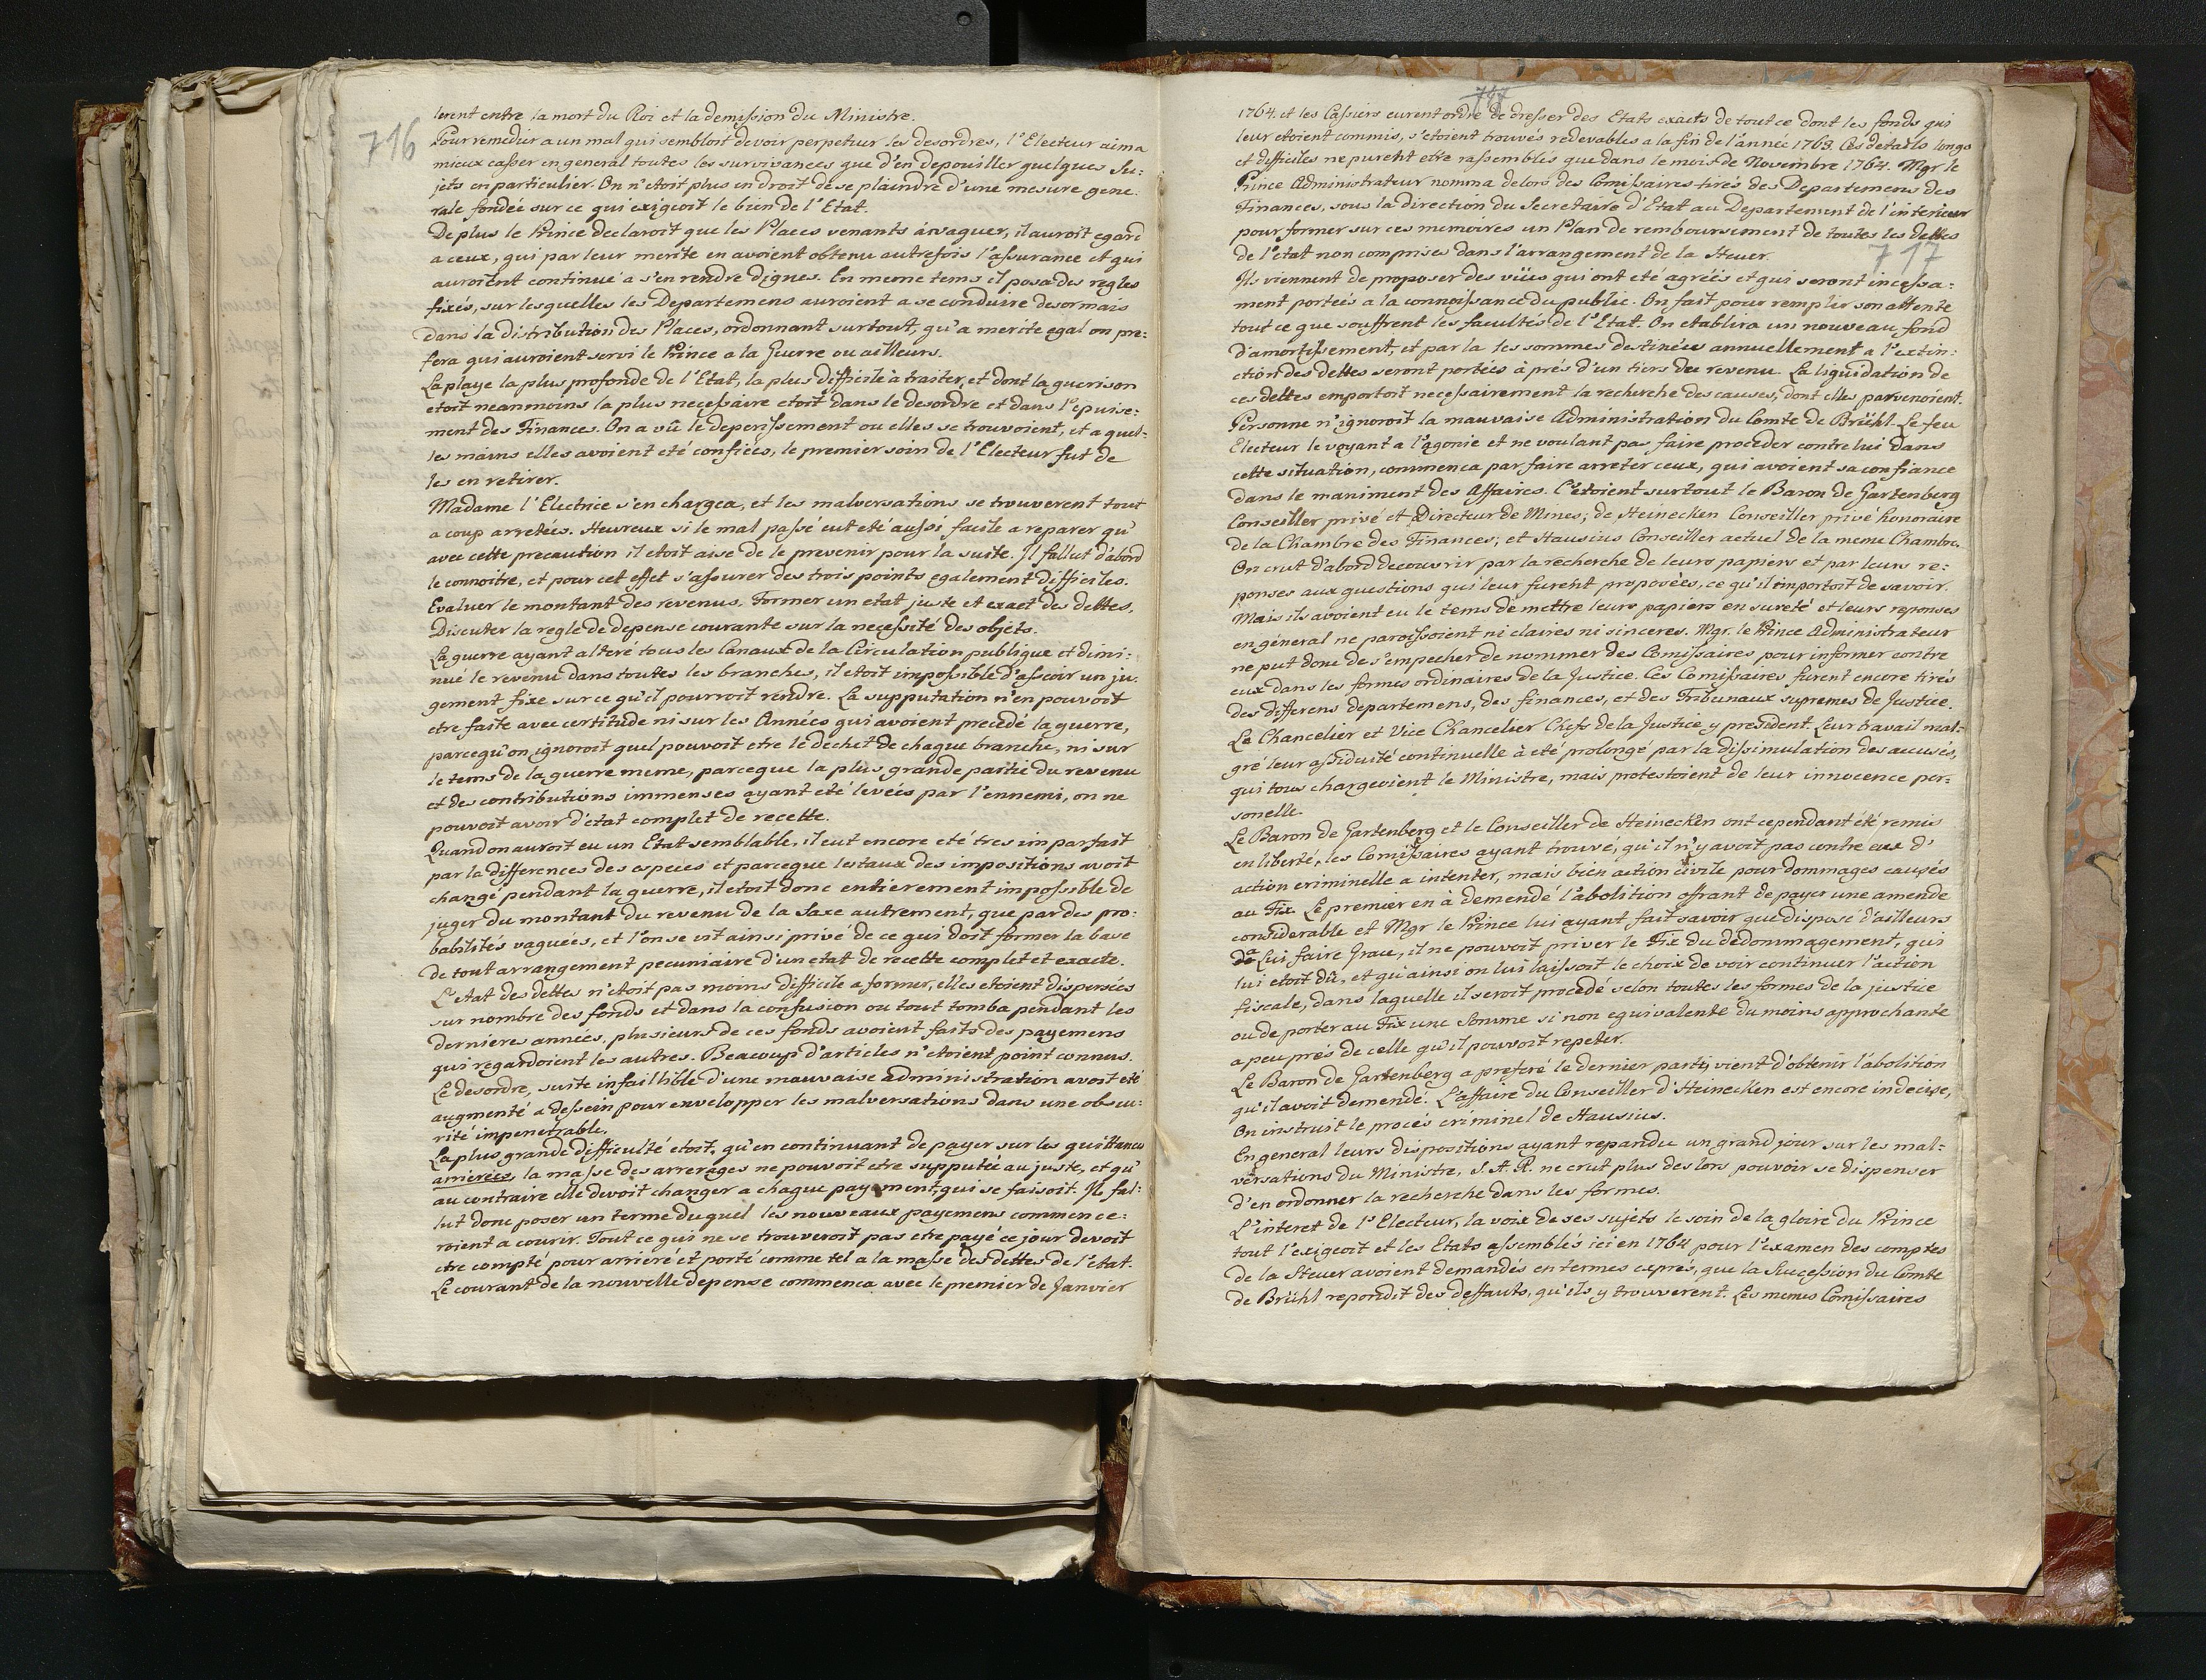 716
lerent entre la mort du Roi et la demission du Ministre.
Pour remedier a un mal qui sembloit devoir perpetuer les desordres, l'Electeur aima
mieux casser en general toutes les survivances que d'en depouiller quelques Su:
jets en particulier. On n'etoit plus en droit de se plaindre d'une mesure gene:
rale fondée sur ce qui exigeoit le bien de l'Etat.
De plus le Prince declaroit que les Places venants à vaquer, il auroit egard
a ceux, qui par leur merite en avoient obtenu autrefois l'assurance et qui
auroient continué a s'en rendre dignes. En meme tems il posa des regles
fixés, sur lesquelles les Departemens auroient a se conduire desormais
dans la distribution des Places, ordonnant surtout, qu'a merite egal on pre:
fera qui auroient servi le Prince a la Guerre ou ailleurs.
La playe la plus profonde de l'Etat, la plus difficile à traiter, et dont la guerison
etoit neanmoins la plus necessaire etoit dans le desordre et dans l'epuise:
ment des Finances. On a vû le deperissement ou elles se trouvoient, et a quel:
les mains elles avoient eté confiées, le premier soin de l'Electeur fut de
les en retirer.
Madame l'Electrice s'en chargea, et les malversations se trouverent tout
a coup arretées. Heureux si le mal passé eut eté aussi facile a reparer qu'
avec cette precaution il etoit aise de le prevenir pour la suite. Il fallut d'abord
le connoitre, et pour cet effet s'assurer des trois points egalement difficiles.
Evaluer le montant des revenus, Former un etat juste et exact des dettes,
Discuter la regle de depense courante sur la necessité des objets.
La guerre ayant alteré tous les Canaux de la Circulation publique et dimi:
nué le revenu dans toutes les branches, il etoit impossible d'asseoir un ju:
gement fixe sur ce qu'il pourroit rendre. La supputation n'en pouvoit
etre faite avec certitude ni sur les Années qui avoient precedé la guerre,
parcequ'on ignoroit quel pouvoit etre le dechet de chaque branche, ni sur
le tems de la guerre meme, parceque la plus grande partie du revenu
et des contributions immenses ayant eté levées par l'ennemi, on ne
pouvoit avoir d'etat complet de recette.
Quand on auroit eu un Etat semblable, il eut encore eté tres imparfait
par la differences des especes et parceque les taux des impositions avoit
changé pendant la guerre, il etoit donc entierement impossible de
juger du montant du revenu de la Saxe autrement, que par des pro:
babilités vaguées, et l'on se vit ainsi privé de ce qui doit former la base
de tout arrangement pecuniaire d'un etat de recette complet et exacte.
L'etat des dettes n'etoit pas moins difficile a former, elles etoient dispersées
sur nombre des fonds et dans la confusion ou tout tomba pendant les
dernieres années, plusieurs de ces fonds avoient faits des payemens
qui regardoient les autres. Beacoup d'articles n'etoient point connus.
Le desordre, suite infaillible d'une mauvaise administration avoit eté
augmenté a dessein pour envelopper les malversations dans une obscu:
rité impenetrable.
La plus grande difficulté etoit, qu'en continuant de payer sur les quittances
arrierées, la masse des arrerages ne pouvoit etre supputée au juste, et qu'
au contraire elle devoit changer a chaque payement, qui se faisoit. Il fal:
lut donc poser un terme duquel les nouveaux payemens commence:
roient a courir. Tout ce qui ne se trouveroit pas etre payé ce jour devoit
etre compté pour arriéré et porté comme tel a la masse des dettes de l'etat.
Le courant de la nouvelle depense commenca avec le premier de Janvier
717
1764. et les Cassiers eurent ordre de dresser des Etats exacts de tout ce dont les fonds qui
leur etoient commis, s'etoient trouvés redevables a la fin de l'année 1763. Ces details longs
et difficiles ne purent etre rassemblés que dans le mois de Novembre 1764. Mgr. le
Prince Administrateur nomma delors des Comissaires tirés des Departemens des
Finances, sous la direction du Secretaire d'Etat au Departement de l'interieur
pour former sur ces memoires un Plan de remboursement de toutes les dettes
de l'etat non comprises dans l'arrangement de la Steuer.
717
Ils viennent de proposer des vües qui ont eté agréés et qui seront incessa:
ment portées a la connoissance du public. On fait pour remplir son attente
tout ce que souffrent les facultés de l'Etat. On etablira un nouveau fond
d'amortissement, et par la les sommes destinées annuellement a l'extin:
ction des dettes seront portées à prés d'un tiers du revenu. La liquidation de
ces dettes emportoit necessairement la recherche des causes, dont elles parvenoient.
Personne n'ignoroit la mauvaise Administration du Comte de Brühl. Le feu
Electeur le voyant a l'agonie et ne voulant pas faire proceder contre lui dans
cette situation, commenca par faire arreter ceux, qui avoient sa confiance
dans le maniment des Affaires. C'etoient surtout le Baron de Gartenberg
Conseiller privé et Directeur de Mines; de Heinecken Conseiller privé honoraire
de la Chambre des Finances; et Hausius Conseiller actuel de la meme Chambre.
On crut d'abord decouvrir par la recherche de leurs papiers et par leurs re:
ponses aux questions qui leur furent proposées, ce qu'il importoit de savoir.
Mais ils avoient eu le tems de mettre leurs papiers en sureté et leurs reponses
en géneral ne paroissoient ni claires ni sinceres. Mgr. le Prince Administrateur
ne put donc de s'empecher de nommer des Comissaires pour informer contre
eux dans les formes ordinaires de la Justice. Ces Comissaires furent encore tirés
des differens departemens, des finances, et des Tribunaux supremes de Justice.
Le Chancelier et Vice Chancelier Chefs de la Justice y president. Leur travail mal:
gré leur assiduité continuelle à eté prolongé par la dissimulation des accusés,
qui tous chargeoient le Ministre, mais protestoient de leur innocence per:
sonelle.
Le Baron de Gartenberg et le Conseiller de Heinecken ont cependant été remis
en liberté, les Comissaires ayant trouvé, qu'il n'y avoit pas contre eux d'
action criminelle a intenter, mais bien action civile pour dommages causés
au Fix. Le premier en à demendé l'abolition offrant de payer une amende
considerable et Mgr le Prince lui ayant fait savoir que disposé d'ailleurs
de Lui faire Grace, il ne pouvoit priver le Fix du dedommagement, qui
lui etoit dû, et qu'ainsi on lui laissoit le choix de voir continuer l'action
fiscale, dans laquelle il seroit procedé selon toutes les formes de la justice
ou de porter au Fix une Somme si non equivalente du moins approchante
a peu prés de celle qu'il pouvoit repeter.
Le Baron de Gartenberg a preferé le dernier party vient d'obtenir l'abolition
qu'il avoit demendé. L'affaire du Conseiller d'Heinecken est encore indecise,
On instruit le procés criminel de Hausius.
En general leurs dispositions ayant repandu un grand jour sur les mal:
versations du Ministre, S. A. R. ne crut plus des lors pouvoir se dispenser
d'en ordonner la recherche dans les formes.
L'interet de l'Electeur, la voix de ses sujets le soin de la gloire du Prince
tout l'exigeoit et les Etats assemblés ici en 1764 pour l'examen des comptes
de la Steuer avoient demandés en termes exprés, que la Succession du Comte
de Brühl repondit des deffauts, qu'ils y trouverent. Les memes Comissaires